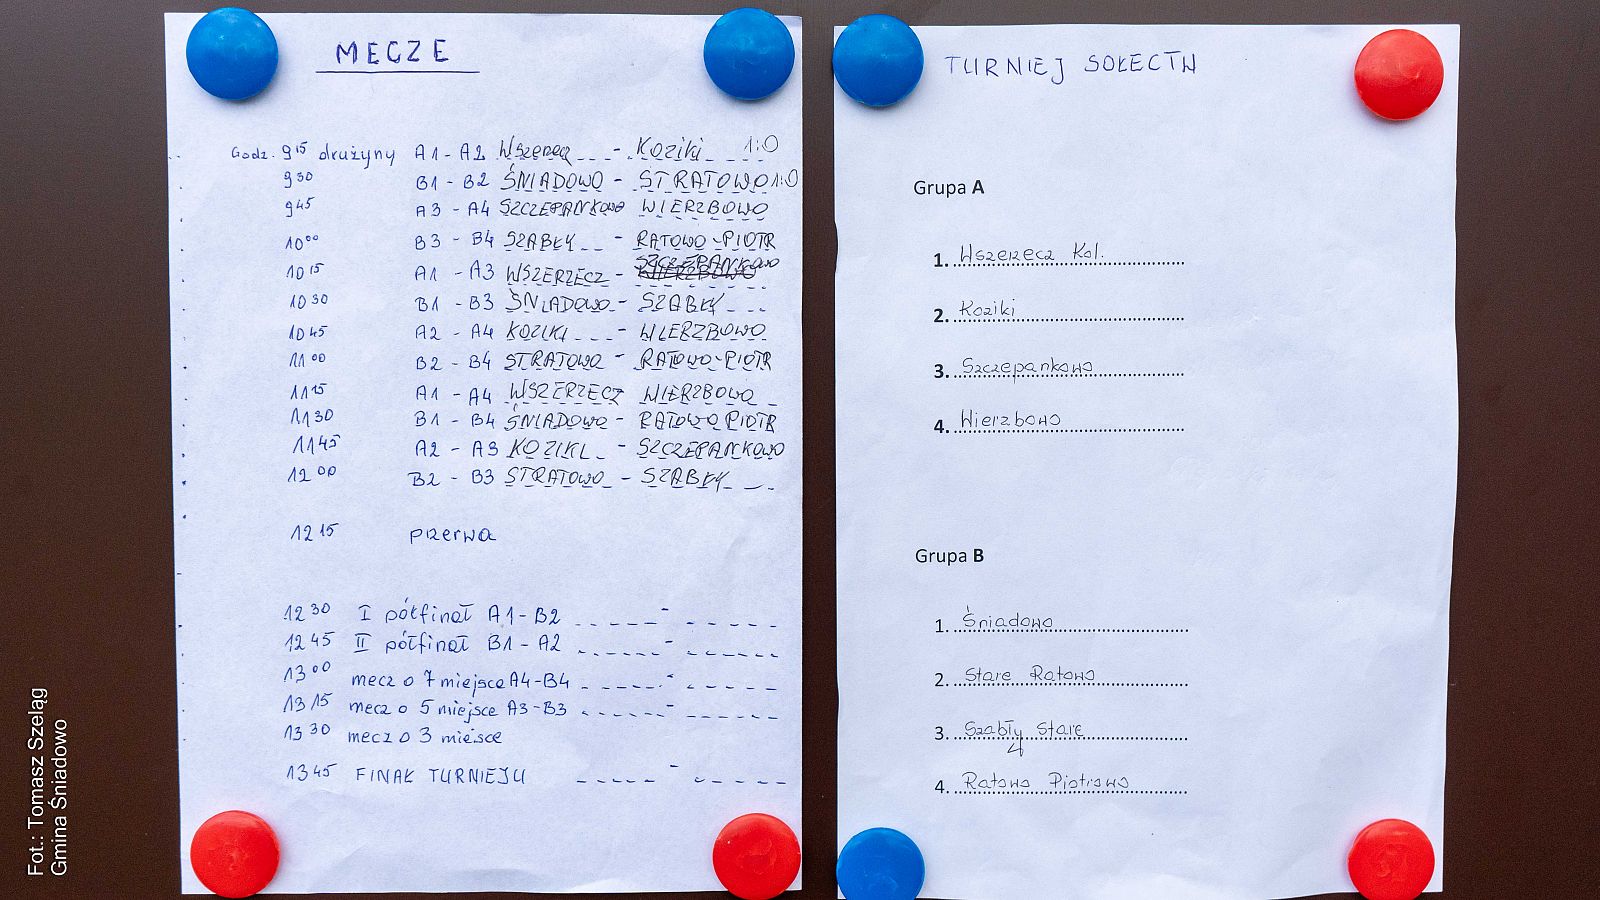 MECZE
Godz. 9 15 drużyny A1 - A2 Wszerzecz - Koziki 1:0
9 30 B1 - B2 ŚNIADOWO - STRATOWO 1:0
9 45 A3 - A4 SZCZEPANKOWO WIERZBOWO
10 00 B3 - B4 SZABŁY - RATOWO-PIOTR
SZCZEPANKOWO
10 15 A1 - A3 WSZERZECZ - WIERZBOWO
10 30 B1 - B3 ŚNIADOWO - SZABŁY
10 45 A2 - A4 KOZIKI - WIERZBOWO
11 00 B2 - B4 STRATOWO - RATOWO-PIOTR
11 15 A1 - A4 WSZERZECZ WIERZBOWO
11 30 B1 - B4 ŚNIADOWO - RATOWO PIOTR
11 45 A2 - A3 KOZIKI - SZCZEPANKOWO
12 00 B2 - B3 STRATOWO - SZABŁY
12 15 przerwa
12 30 I półfinał A1 - B2 -
12 45 II półfinał B1 - A2 -
13 00 mecz o 7 miejsce A4 - B4 -
13 15 mecz o 5 miejsce A3 - B3 -
13 30 mecz o 3 miejsce
13 45 FINAŁ TURNIEJU -
TURNIEJ SOŁECTW
Grupa A
1. Wszerzecz Kol.
2. Koziki
3. Szczepankowo
4. Wierzbowo
Grupa B
1. Śniadowo
2. Stare Ratowo
3. Szabły Stare
4
4. Ratowo Piotrowo
Fot.: Tomasz Szeląg
Gmina Śniadowo